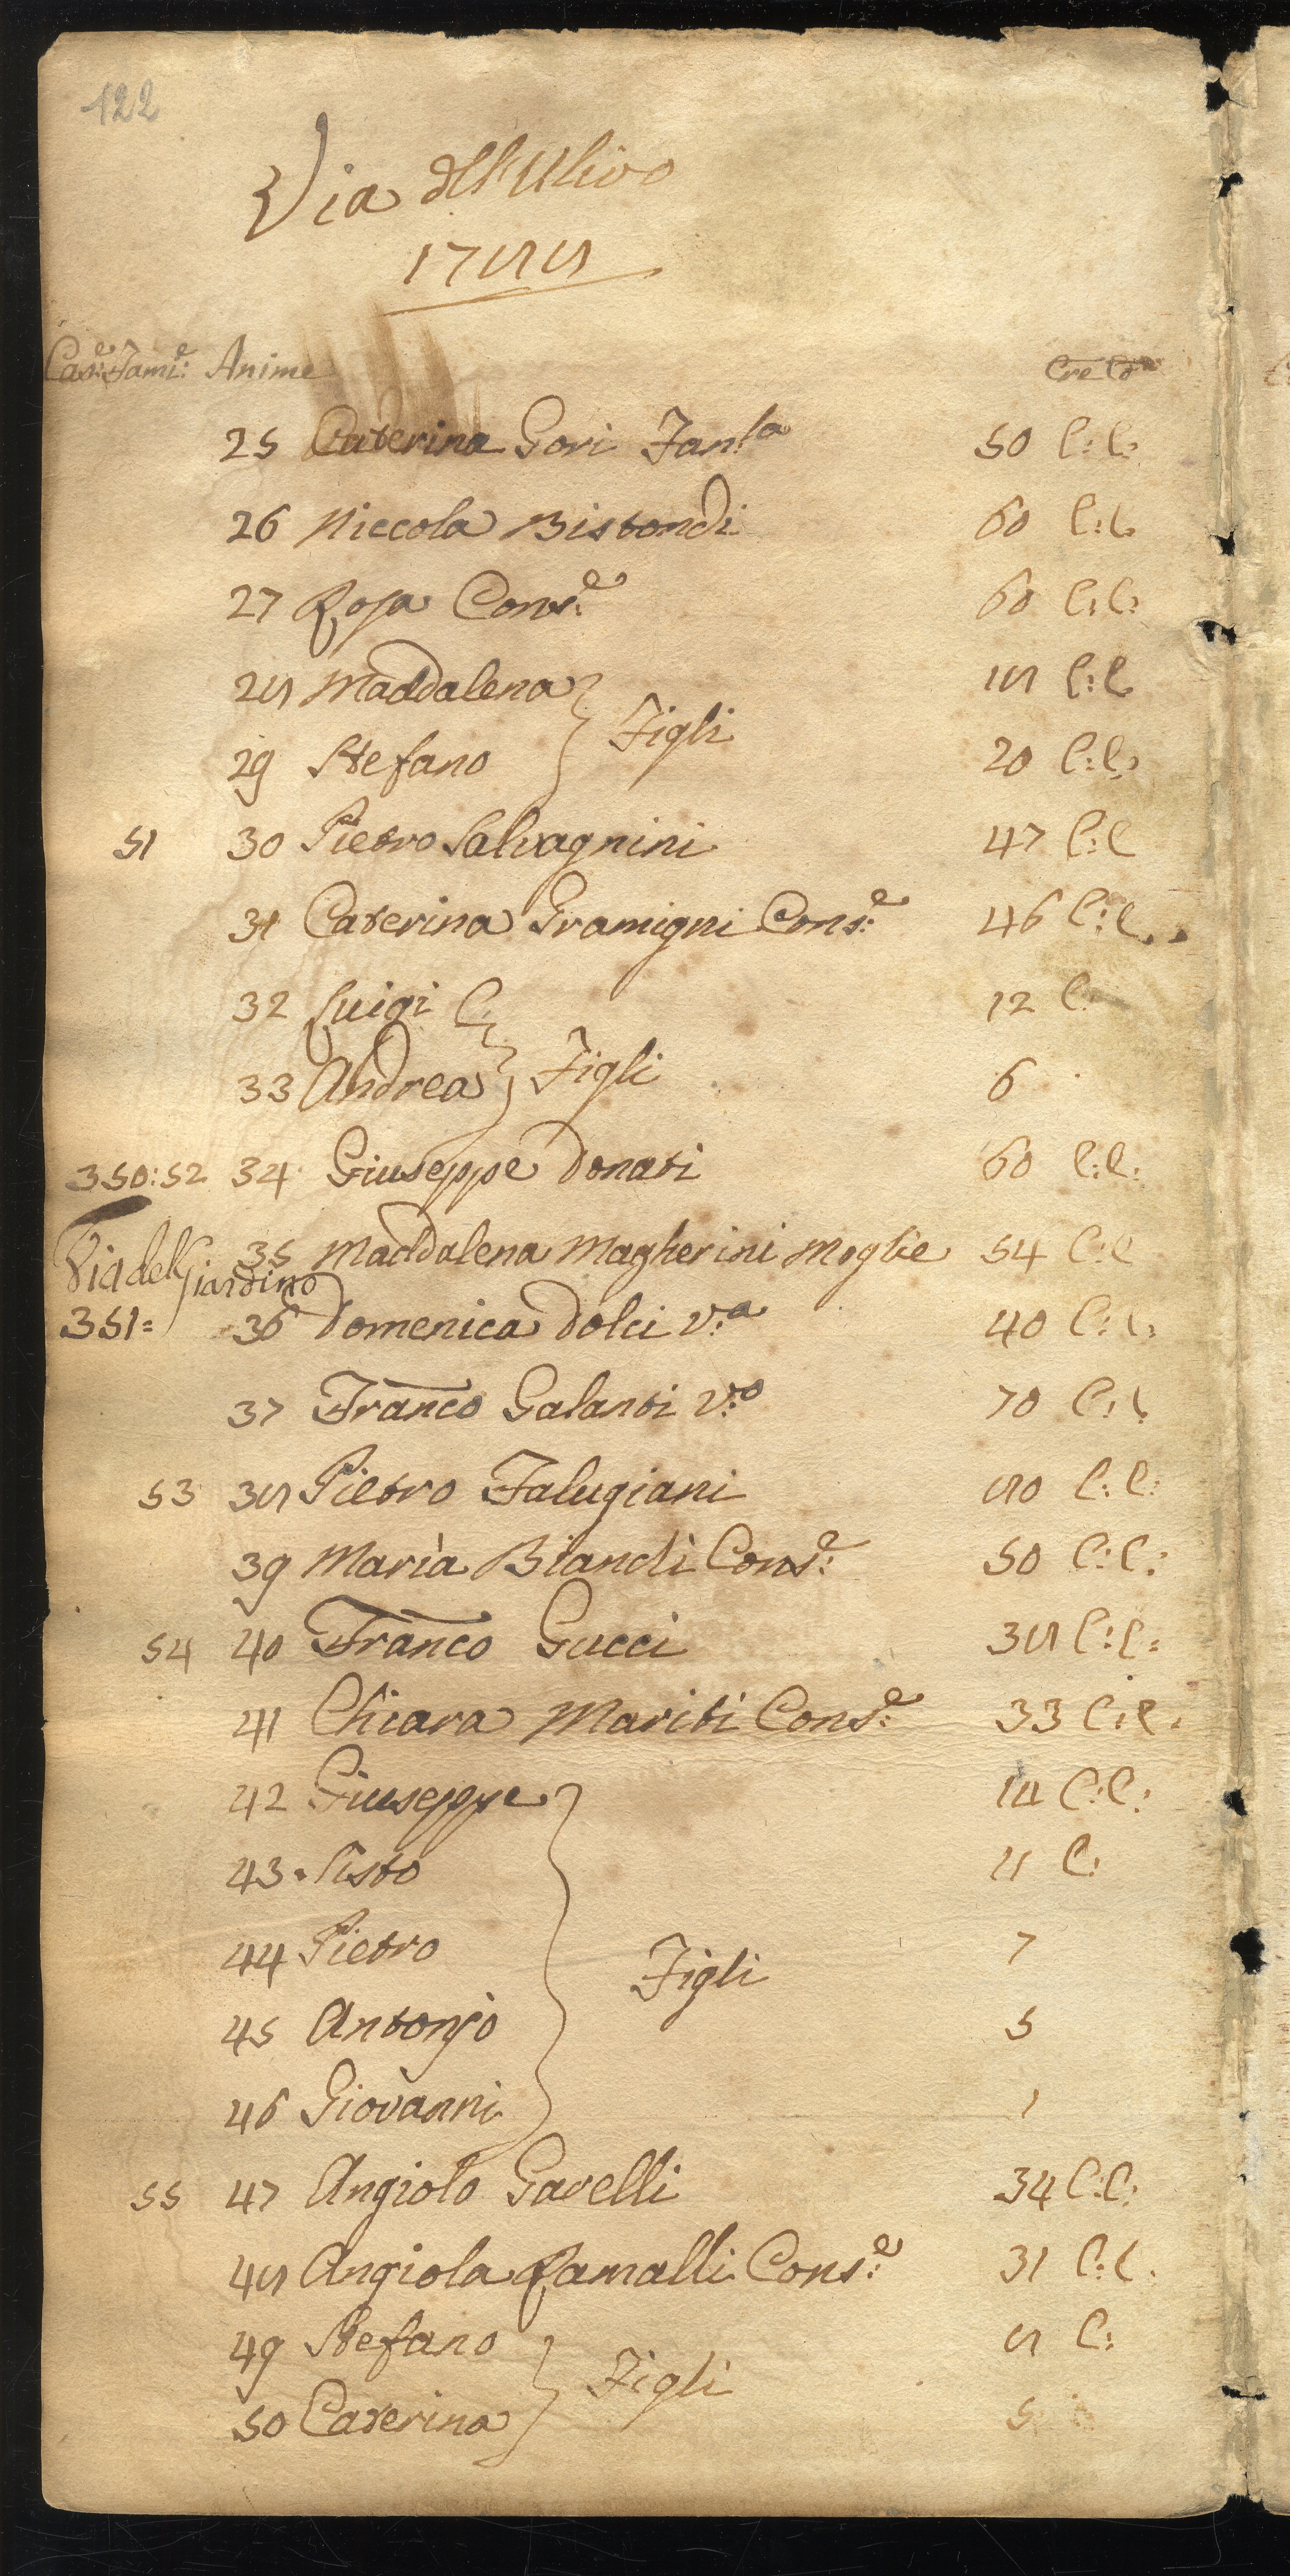 122
Via dell'Ulivo
1788
Cas:e Fami:e Anime Cre Co
25 Caterina Gori Fan:la 50 C: C:
26 Niccola Bistondi 60 C: C:
27 Rosa Cons:e 60 C: C:
28 Maddalena 18 C: C
29 Stefano Figli 20 C: C:
51 30 Pietro Salvagnini 47 C: C
31 Caterina Gramigni Cons:e 46 C: C.
32 Luigi C: 12 C:
33 Andrea Figli 6
350: 52 34 Giuseppe Donati 60 C: C:
Via del Giardino 35 Maddalena Magherini Moglie 54 C: C
351= 36 Domenica Dolci V:a 40 C: C:
37 Franco Galanti V:o 70 C: C
53 38 Pietro Falugiani 80 C: C:
39 Maria Biandi Cons:e 50 C: C:
54 40 Franco Gucci 38 C: C:
41 Chiara Mariti Cons:e 33 C: C.
42 Giuseppe 14 C: C:
43 Sisto 11 C:
44 Pietro Figli 7
45 Antonjo 5
46 Giovanni 1
55 47 Angiolo Gavelli 34 C: C:
48 Angiola Ramalli Cons:e 31 C: C.
49 Stefano 8 C:
50 Caterina Figli 5